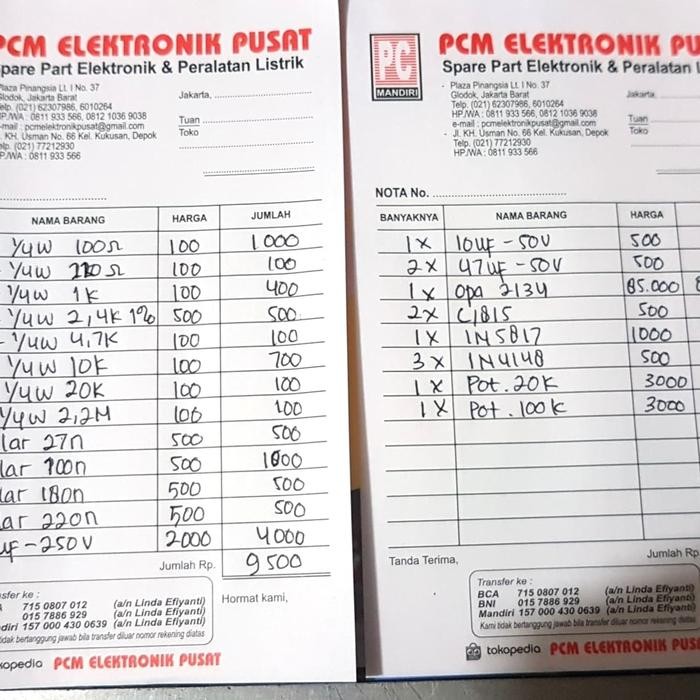 PCM ELEKTRONIK PUSAT
Spare Part Elektronik & Peralatan Listrik
Plaza Pinangsia Lt. I No. 37
Glodok, Jakarta Barat
Telp. (021) 62307986, 6010264
HP/WA : 0811 933 566, 0812 1036 9038
e-mail : pcmelektronikpusat@gmail.com
KH. Usman No. 66 Kel. Kukusan, Depok
Telp. (021) 77212930
HP/WA : 0811 933 566
Jakarta,
Tuan
Toko
NAMA BARANG HARGA JUMLAH
1/4W 100Ω 100 1000
1/4W Ω 100 100
1/4W 1K 100 400
1/4W 2,4K 1% 500 500
1/4W 4.7K 100 100
1/4W 10K 100 700
1/4W 20K 100 100
1/4W 2,2M 100 100
lar 27n 500 500
lar 100n 500 1000
lar 180n 500 500
ar 220n 500 500
uf-250V 2000 4000
Jumlah Rp. 9500
sfer ke :
715 0807 012 (a/n Linda Efiyanti)
015 7886 929 (a/n Linda Efiyanti)
diri 157 000 430 0639 (a/n Linda Efiyanti)
tidak bertanggung jawab bila transfer diluar nomor rekening diatas
Hormat kami,
kopedia PCM ELEKTRONIK PUSAT
PC
MANDIRI
PCM ELEKTRONIK PU
Spare Part Elektronik & Peralatan L
- Plaza Pinangsia Lt. I No. 37
Glodok, Jakarta Barat
Telp. (021) 62307986, 6010264
HP/WA : 0811 933 566, 0812 1036 9038
e-mail : pcmelektronikpusat@gmail.com
- Jl. KH. Usman No. 66 Kel. Kukusan, Depok
Telp. (021) 77212930
HP/WA : 0811 933 566
Jakarta
Tuan
Toko
NOTA No.
BANYAKNYA NAMA BARANG HARGA
1x 10uF-50V 500
2x 47uF-50V 500
1x Opa 2134 85.000 8
2x C1815 500
1X 1N5817 1000
3x 1N4148 500
1X Pot. 20K 3000
1X Pot. 100K 3000
Tanda Terima,
Jumlah Rp
Transfer ke :
BCA 715 0807 012 (a/n Linda Efiyanti)
BNI 015 7886 929 (a/n Linda Efiyanti)
Mandiri 157 000 430 0639 (a/n Linda Efiyanti)
Kami tidak bertanggung jawab bila transfer diluar nomor rekening diatas
tokopedia PCM ELEKTRONIK PUSA